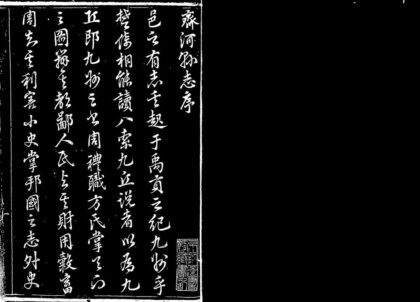 齊河縣志序
邑之有志其起于禹貢之紀九州乎
楚倚相能讀八索九丘說者以為九
丘即九州之志周禮職方氏掌天下
之圖辨其都鄙人民與其財用穀畜
周知其利害小史掌邦國之志外史